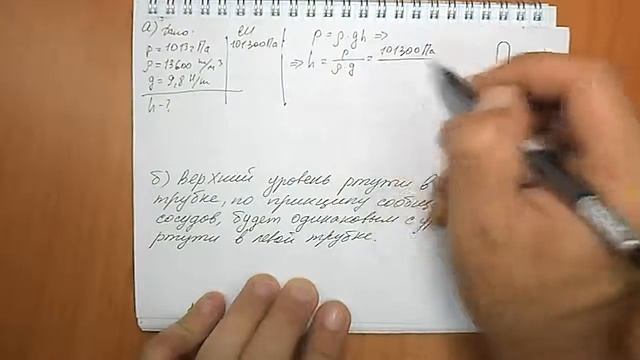 а) Дано:
p = 1013 гПа
ρ = 13600 кг/м³
g = 9,8 Н/кг
h - ?
СИ
101300 Па
p = ρ·gh ⇒
⇒ h = p/ρ·g = 101300 Па
б) Верхний уровень ртути в
трубке, по принципу
сосудов, будет одинаковым с
ртути в левой трубке.